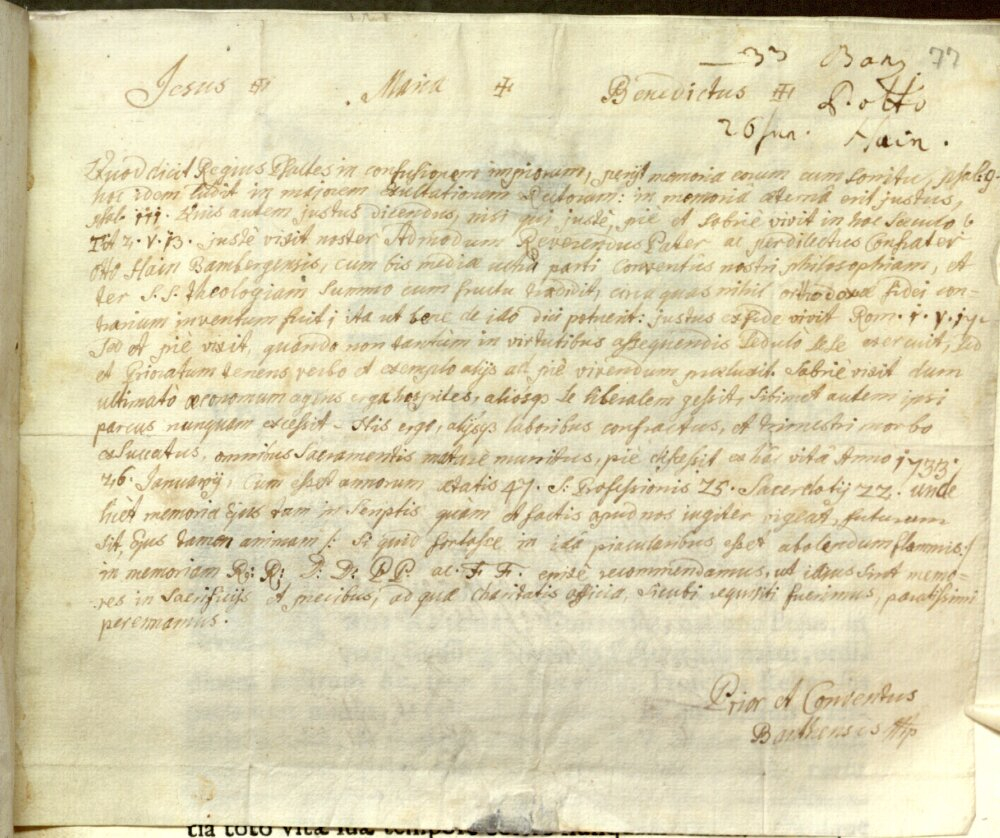 33 Banz 77
Jesus Maria Benedictus P. Otto
26 Jan. Hain.
Quod dicit Regius Psaltes in confusionem impiorum, periit memoria eorum cum sonitu, psal: 9.
hoc idem in majorem exultationem : in memoria aeterna erit justus,
psal. 111. Quis autem justus dicendus, nisi qui justè, piè et sobriè vivit in hoc saeculo
Tit 2. v. 13. justè vixit noster Admodum Reverendus Pater ac perdilectus Confrater
Otto Hain Bambergensis, cum bis mediae parti Conventûs nostri philosophiam, et
ter S.S. theologiam summo cum fructu tradidit, circa quas nihil orthodoxae fidei con-
trarium inventum fuit; ita ut bene de illo dici potuerit: justus ex fide vivit Rom. 1. v. 17.
Sed et piè vixit, quando non tantùm in virtutibus assequendis sedulò sese exercuit, sed
et Prioratum tenens verbo et exemplo alijs ad piè vivendum praeluxit. Sobriè vixit dum
ultimatò oeconomum agens erga hospites, aliosq; se liberalem gessit, sibimet autem ipsi
parcus nunquam excessit. His ergo, alijsq; laboribus confractus, et trimestri morbo
exsuccatus, omnibus Sacramentis maturè munitus, piè discessit ex hâc vitâ Anno 1733
26. Januarij, cum esset annorum aetatis 47. S. Professionis 25. Sacerdotij 22. unde
licèt memoria ejus tam in scriptis quam et factis apud nos jugiter vigeat, futurum
sit, Ejus tamen animam /: si quid fortasse in illa piacularibus esset abolendum flammis :/
in memoriam RR: RR: P: D: PP. ac F. F. enixè recommendamus, ut illius sint memo-
res in Sacrificijs et precibus, ad quae charitatis officia, sicubi requisiti fuerimus, paratissimi
peremamus.
Prior et Conventus
Banthensis
tia toto vitae suae tempore